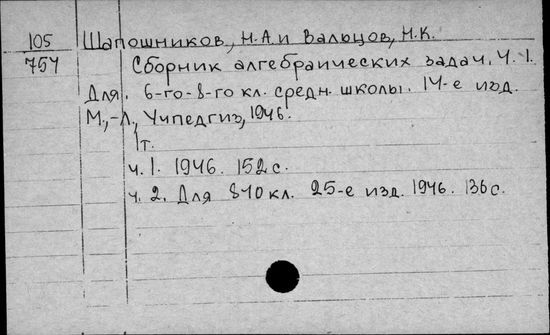 105 Шапошников, Н.А и Вальцов, Н.К.
754 Сборник алгебраических задач. Ч. 1.
Для. 6-го-8-го кл. средн. школы. 14-е изд.
М.,-Л., Учпедгиз, 1946.
1т.
ч. 1. 1946. 152 с.
ч. 2. Для 8-10 кл. 25-е изд. 1946. 136 с.